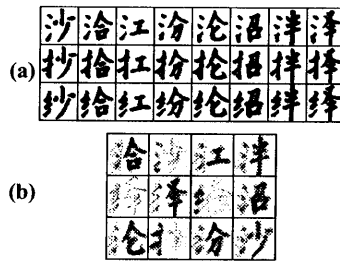 (a)
沙洽江汾沦沼泮泽
抄拾扛扮抡招拌择
纱给红纷纶绍绊绎
(b)
洽沙江泮
泽沼
沦汾沙